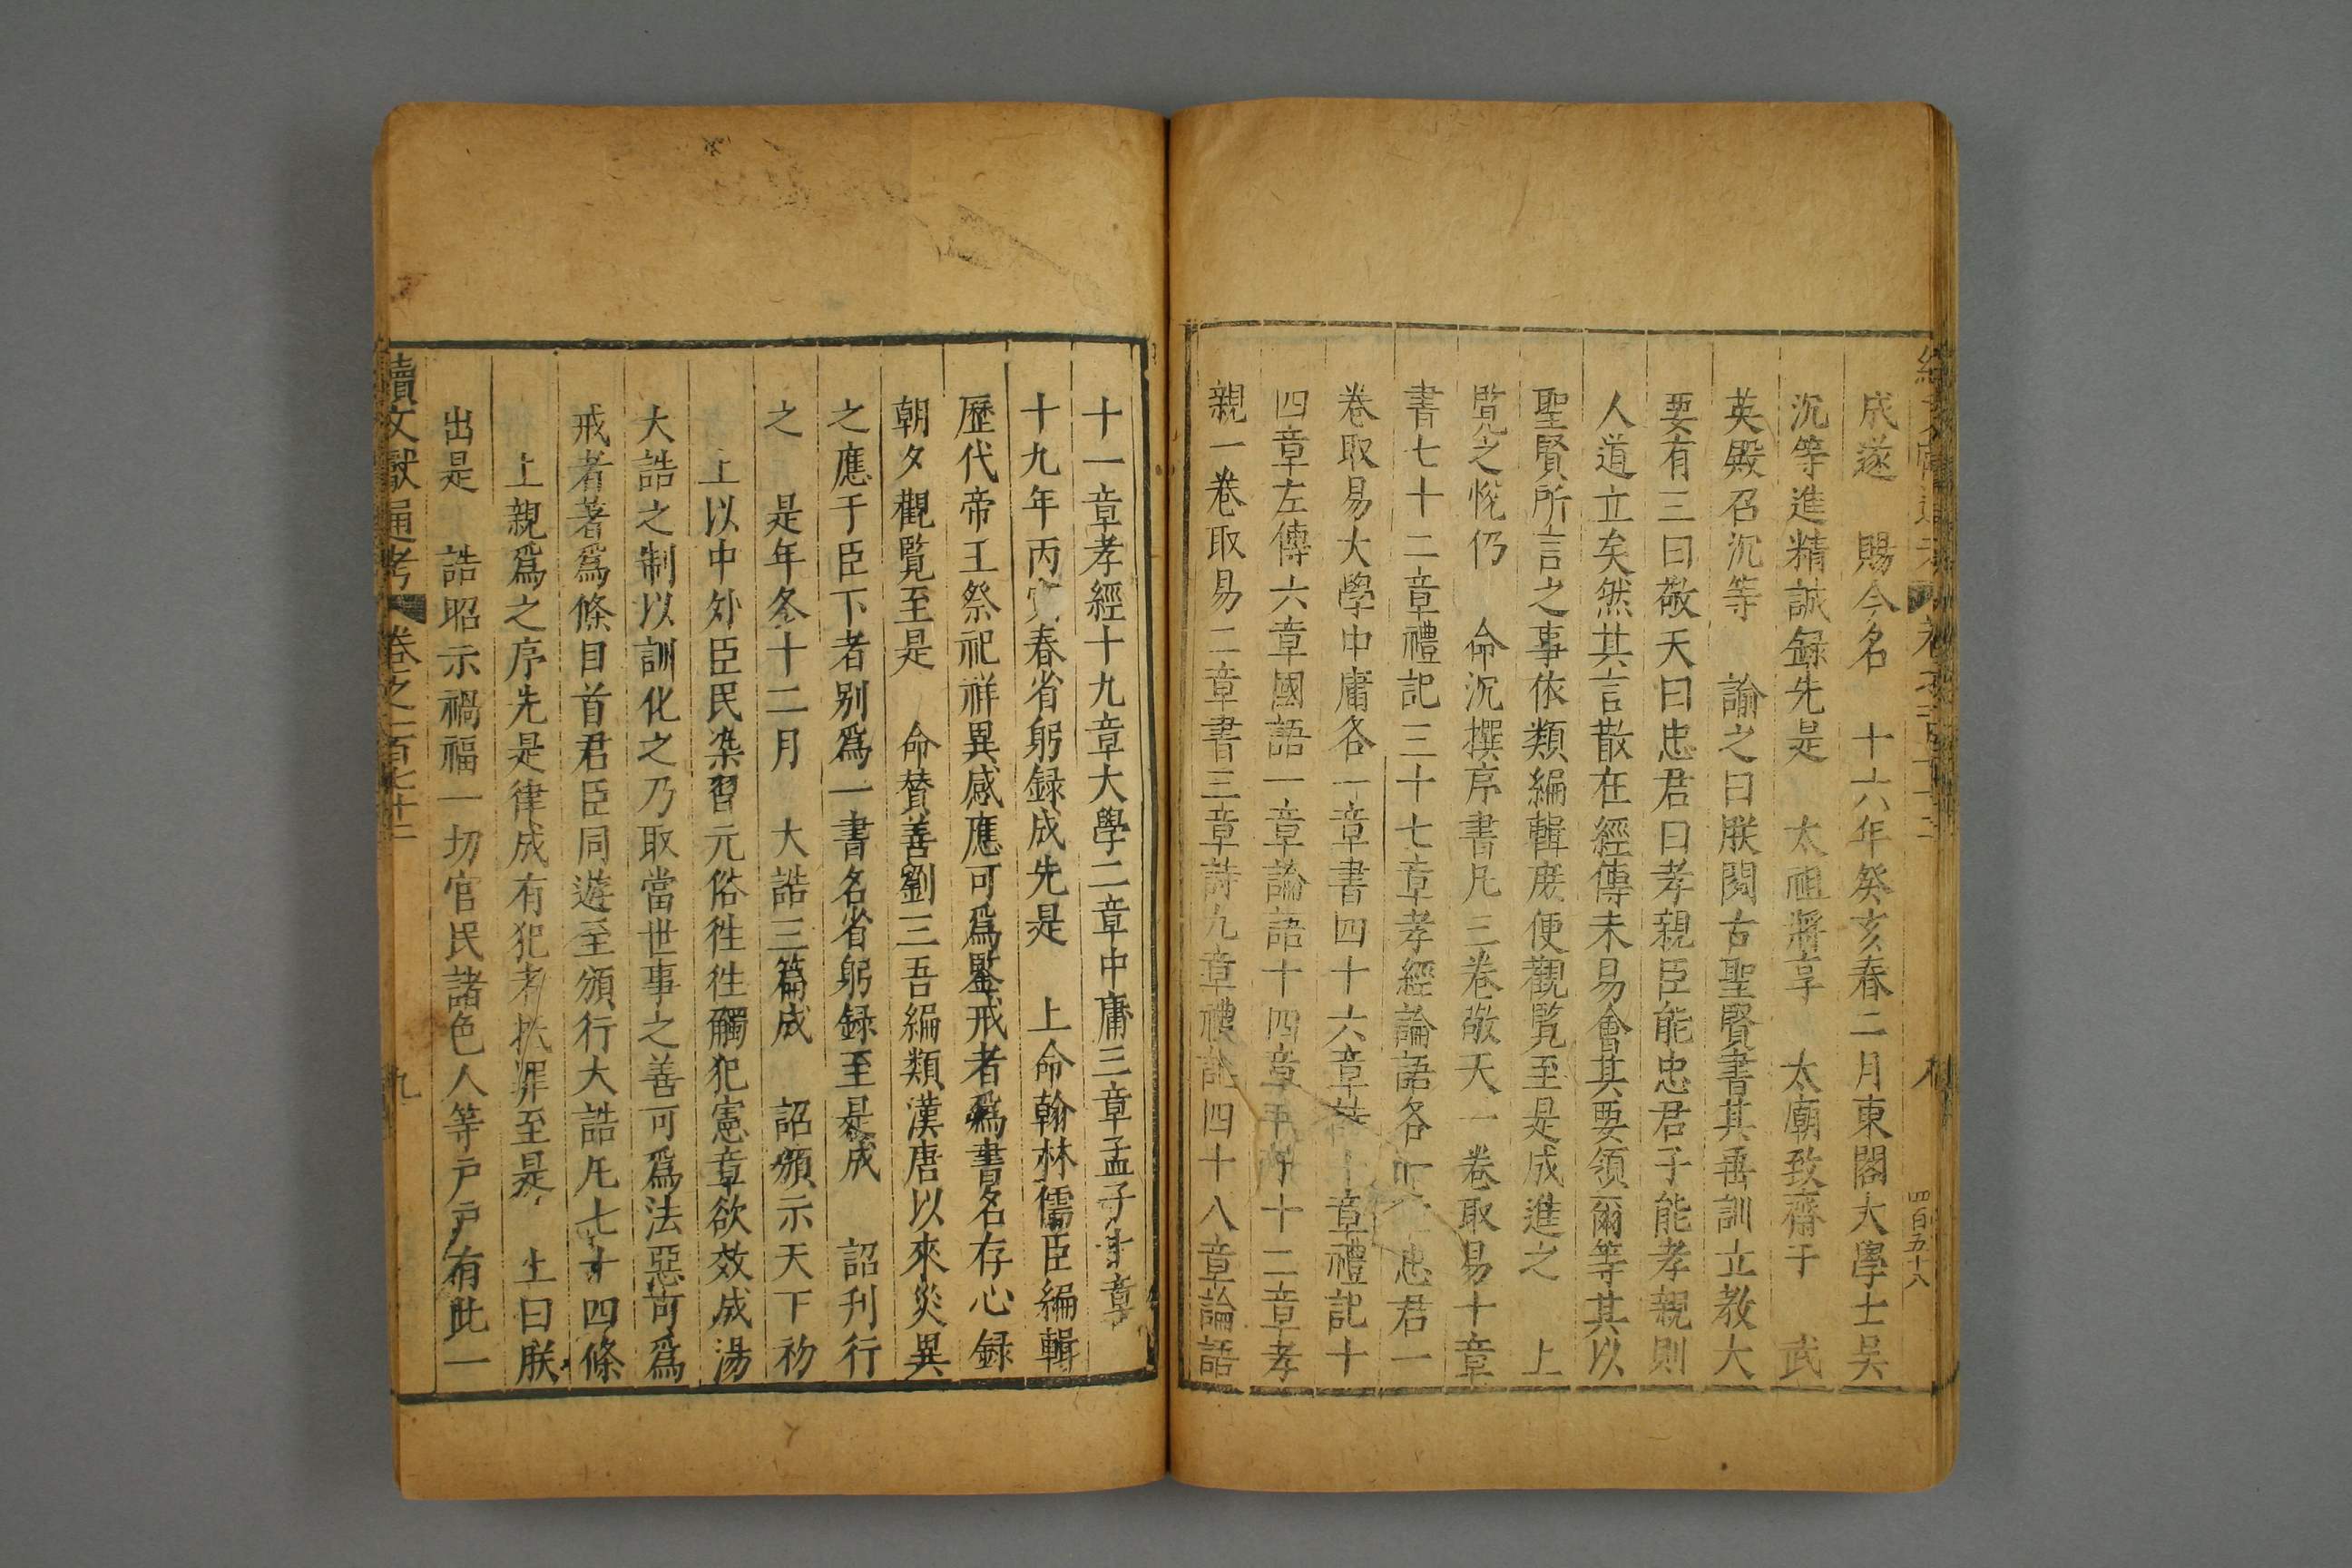 成遂　賜今名　十六年癸亥春二月東閣大學士吳
沉等進精誠録先是　太祖將享　太廟致齋于　武
英殿召沉等　諭之曰朕閱古聖賢書其垂訓立教大
要有三曰敬天曰忠君曰孝親臣能忠君子能孝親則
人道立矣然其言散在經傳未易會其要領爾等其以
聖賢所言之事依類編輯庶便觀覽至是成進之　上
覽之悅仍　命沉撰序書凡三卷敬天一卷取易十章
書七十二章禮記三十七章孝經論語各一忠君一
卷取易大學中庸各一章書四十六章詩章禮記十
四章左傳六章國語一章論語十四章十二章孝
親一卷取易二章書三章詩九章禮記四十八章論語
十一章孝經十九章大學二章中庸三章孟子十章
十九年丙寅春省躬録成先是　上命翰林儒臣編輯
歷代帝王祭祀祥異感應可爲鑒戒者爲書名存心録
朝夕觀覽至是　命贊善劉三吾編類漢唐以來災異
之應于臣下者别爲一書名省躬録至是成　詔刊行
之　是年冬十二月　大誥三篇成　詔頒示天下初
上以中外臣民染習元俗徃徃觸犯憲章欲效成湯
大誥之制以訓化之乃取當世事之善可爲法惡可爲
戒者著爲條目首君臣同遊至頒行大誥凡七十四條
上親爲之序先是律成有犯者抵罪至是　上曰朕
出是　誥昭示禍福一切官民諸色人等戸戸有此一
續文獻通考　卷之一百七十二　九
四百五十八